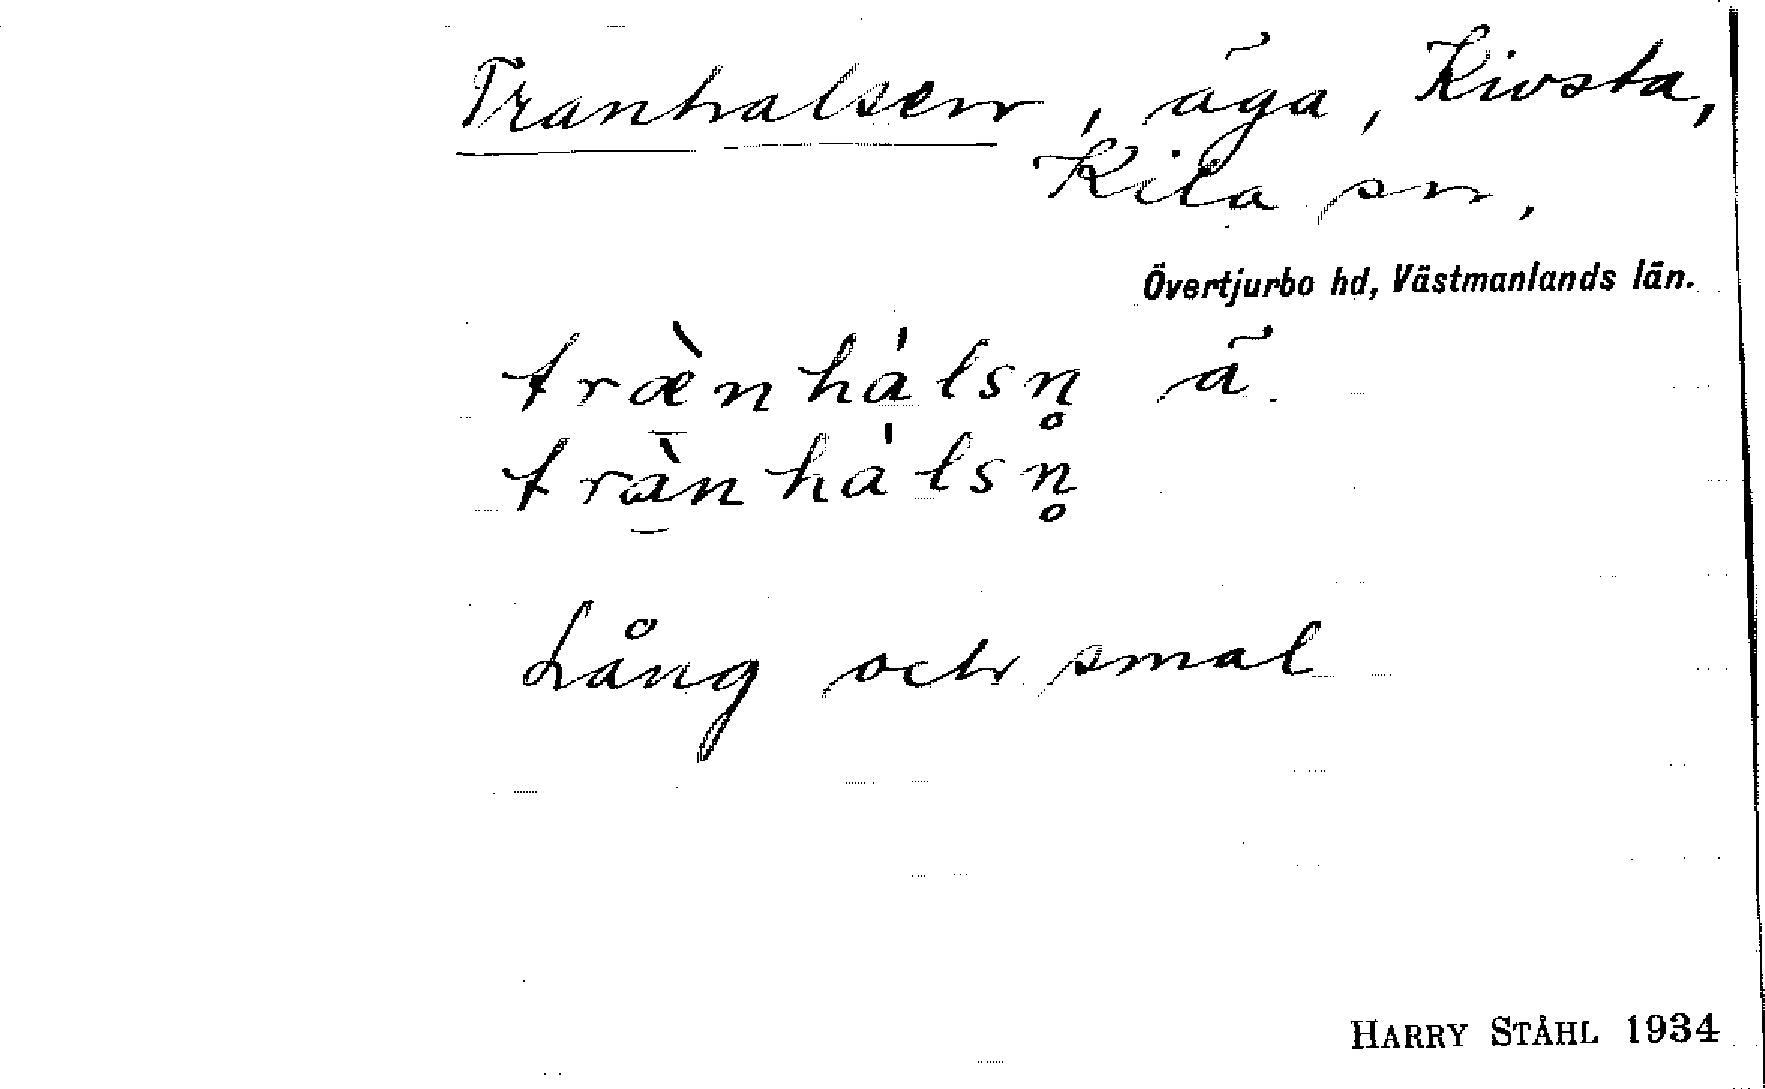 Tranhalsen, äga, Kivsta,
Kila sn,
Övertjurbo hd, Västmanlands län.
træ̀nhálsn̥ ä
trànhálsn̥
Lång och smal
HARRY STÅHL 1934